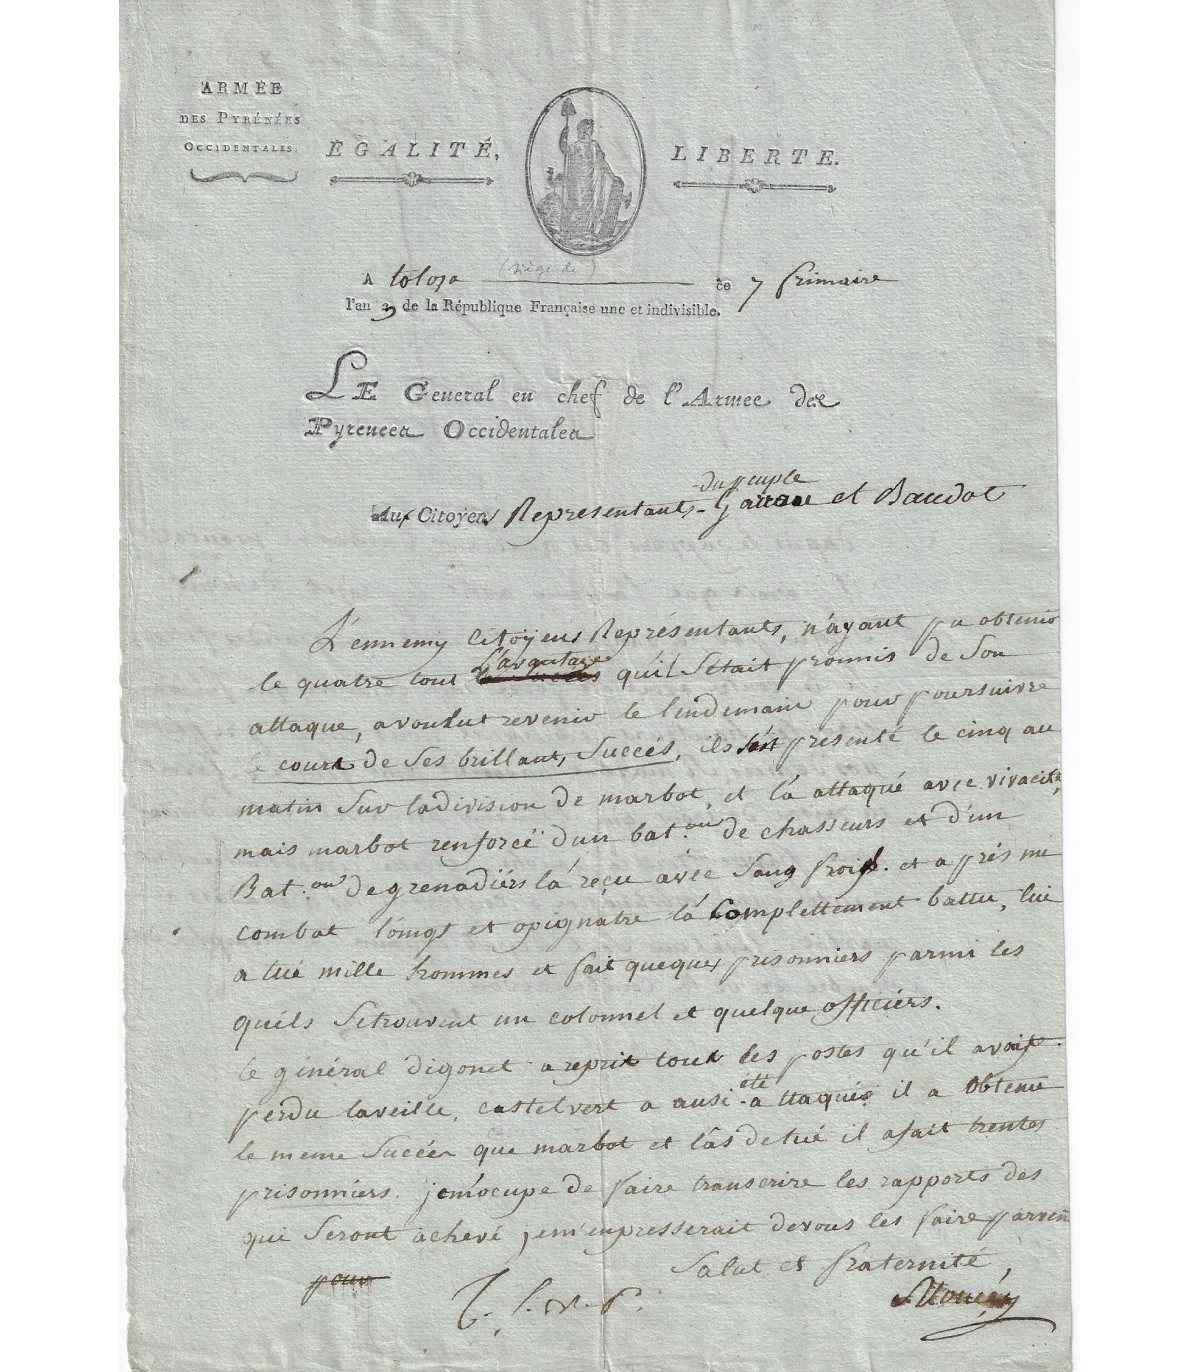 ARMÉE
DES PYRÉNÉES
OCCIDENTALES
ÉGALITÉ, LIBERTÉ.
A tolosa (siège de) ce 7 frimaire
l'an 3 de la République Française une et indivisible.
LE General en chef de l'Armee des
Pyrenees Occidentales
Aux Citoyens Representants - du peuple Garrau et Baudot
L'ennemy Citoÿens Représentants, n'ayant pu obtenir
le quatre tout le succès l'avantage qu'il s'était promis de son
attaque, a voulut revenir le lendemain pour poursuivre
le cours de ses brillants succés, ils s'est présenté le cinq au
matin sur la division de marbot, et l'á attaqué avec vivacité,
mais marbot renforcé d'un bat.on de chasseurs et d'un
Bat.on de grenadiérs l'á reçu avec sang froid. et a prés un
combat loings et opignatre l'á complettement battu, lui
a tué mille hommes et fait queques prisonniers parmi les
quéls se trouvent un colonnel et quelque officiérs.
le général digonet a reprit tout les postes qu'il avait
perdu la veille, castelvert a ausi été attaqués il a obtenu
le meme succés que marbot et l'as detué il a fait trentes
prisonniers. je m'ocupe de faire transcrire les rapports des
qui seront achevé, je m'empresserait de vous les faire parvenir
Salut et fraternité,
pour
T. S. V. P.
Moncey